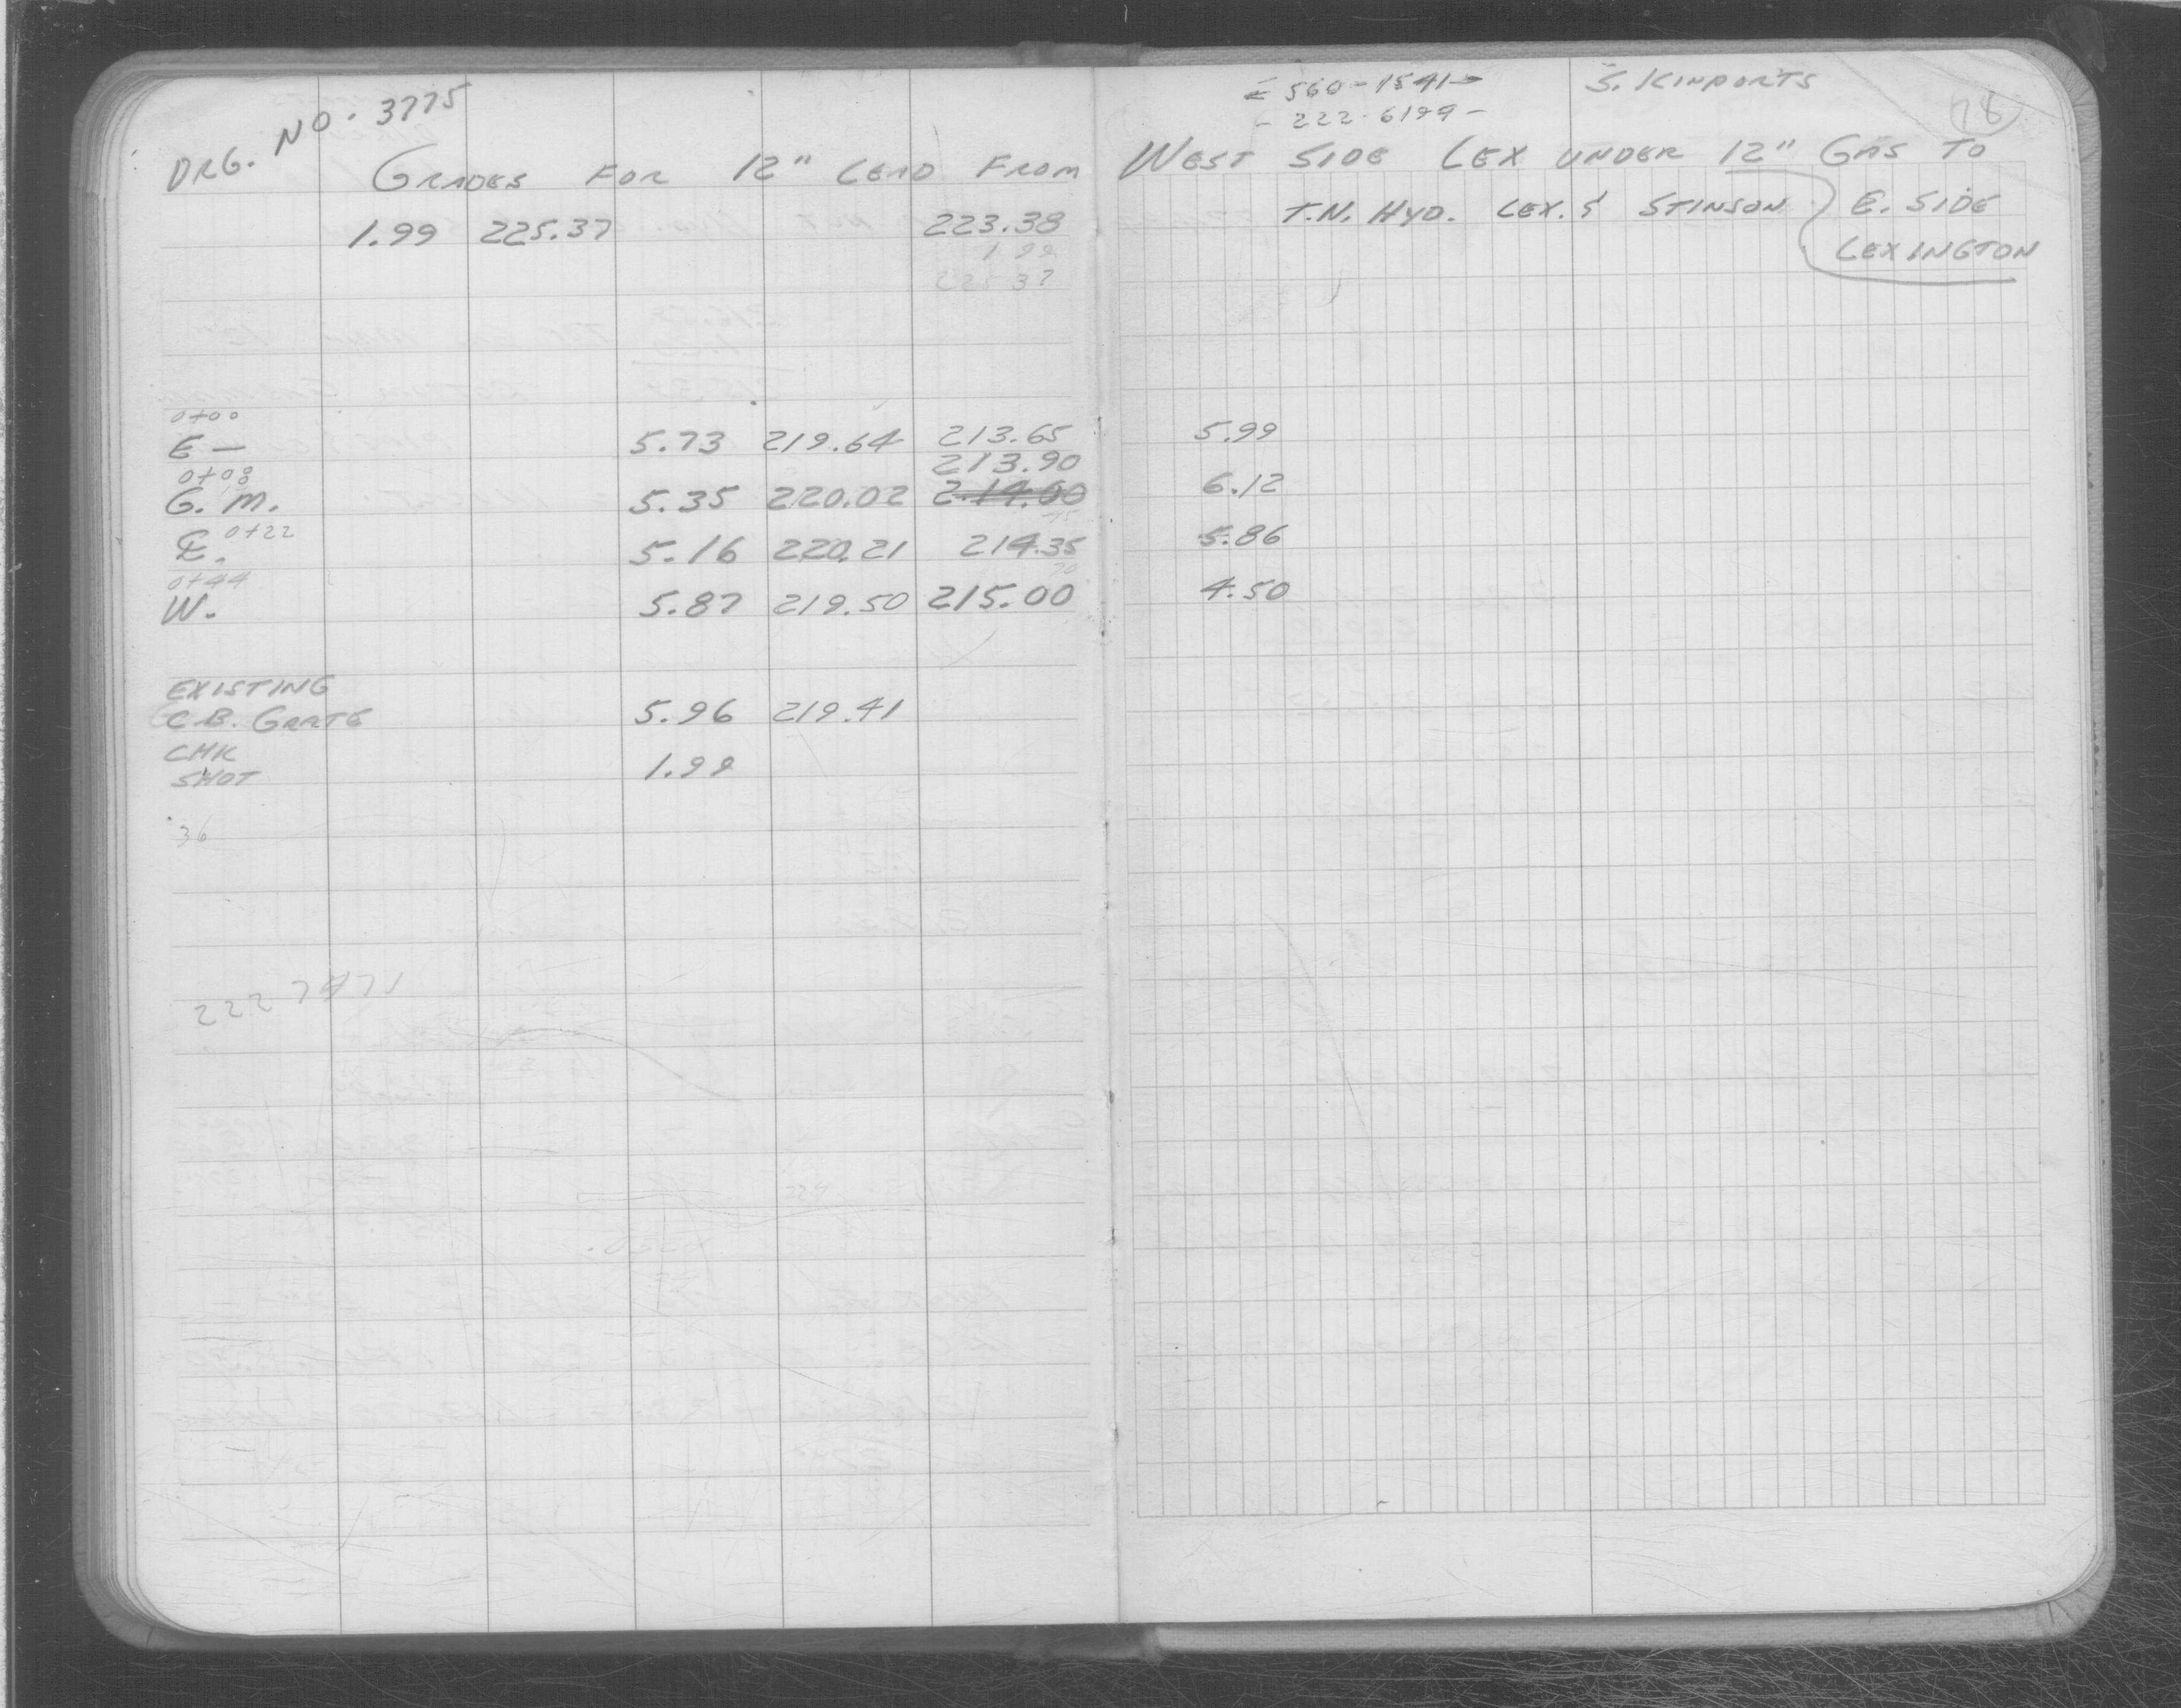 DRG. NO. 3775
GRADES FOR 12" LEAD FROM
1.99 225.37 223.38
1 99
225 37
0+00
E — 5.73 219.64 213.65
213.90
0+08
G. M. 5.35 220.02 214.00
℄. 0+22 5.16 220.21 214.35
0+44
W. 5.87 219.50 215.00
EXISTING
C.B. GRATE 5.96 219.41
CHK
SHOT 1.99
36
222 7471
← 560-1541→ S. KINPORTS
- 222-6199 - 78
WEST SIDE LEX UNDER 12" GAS TO
T.N. HYD. LEX. & STINSON E. SIDE
LEXINGTON
5.99
6.12
5.86
4.50